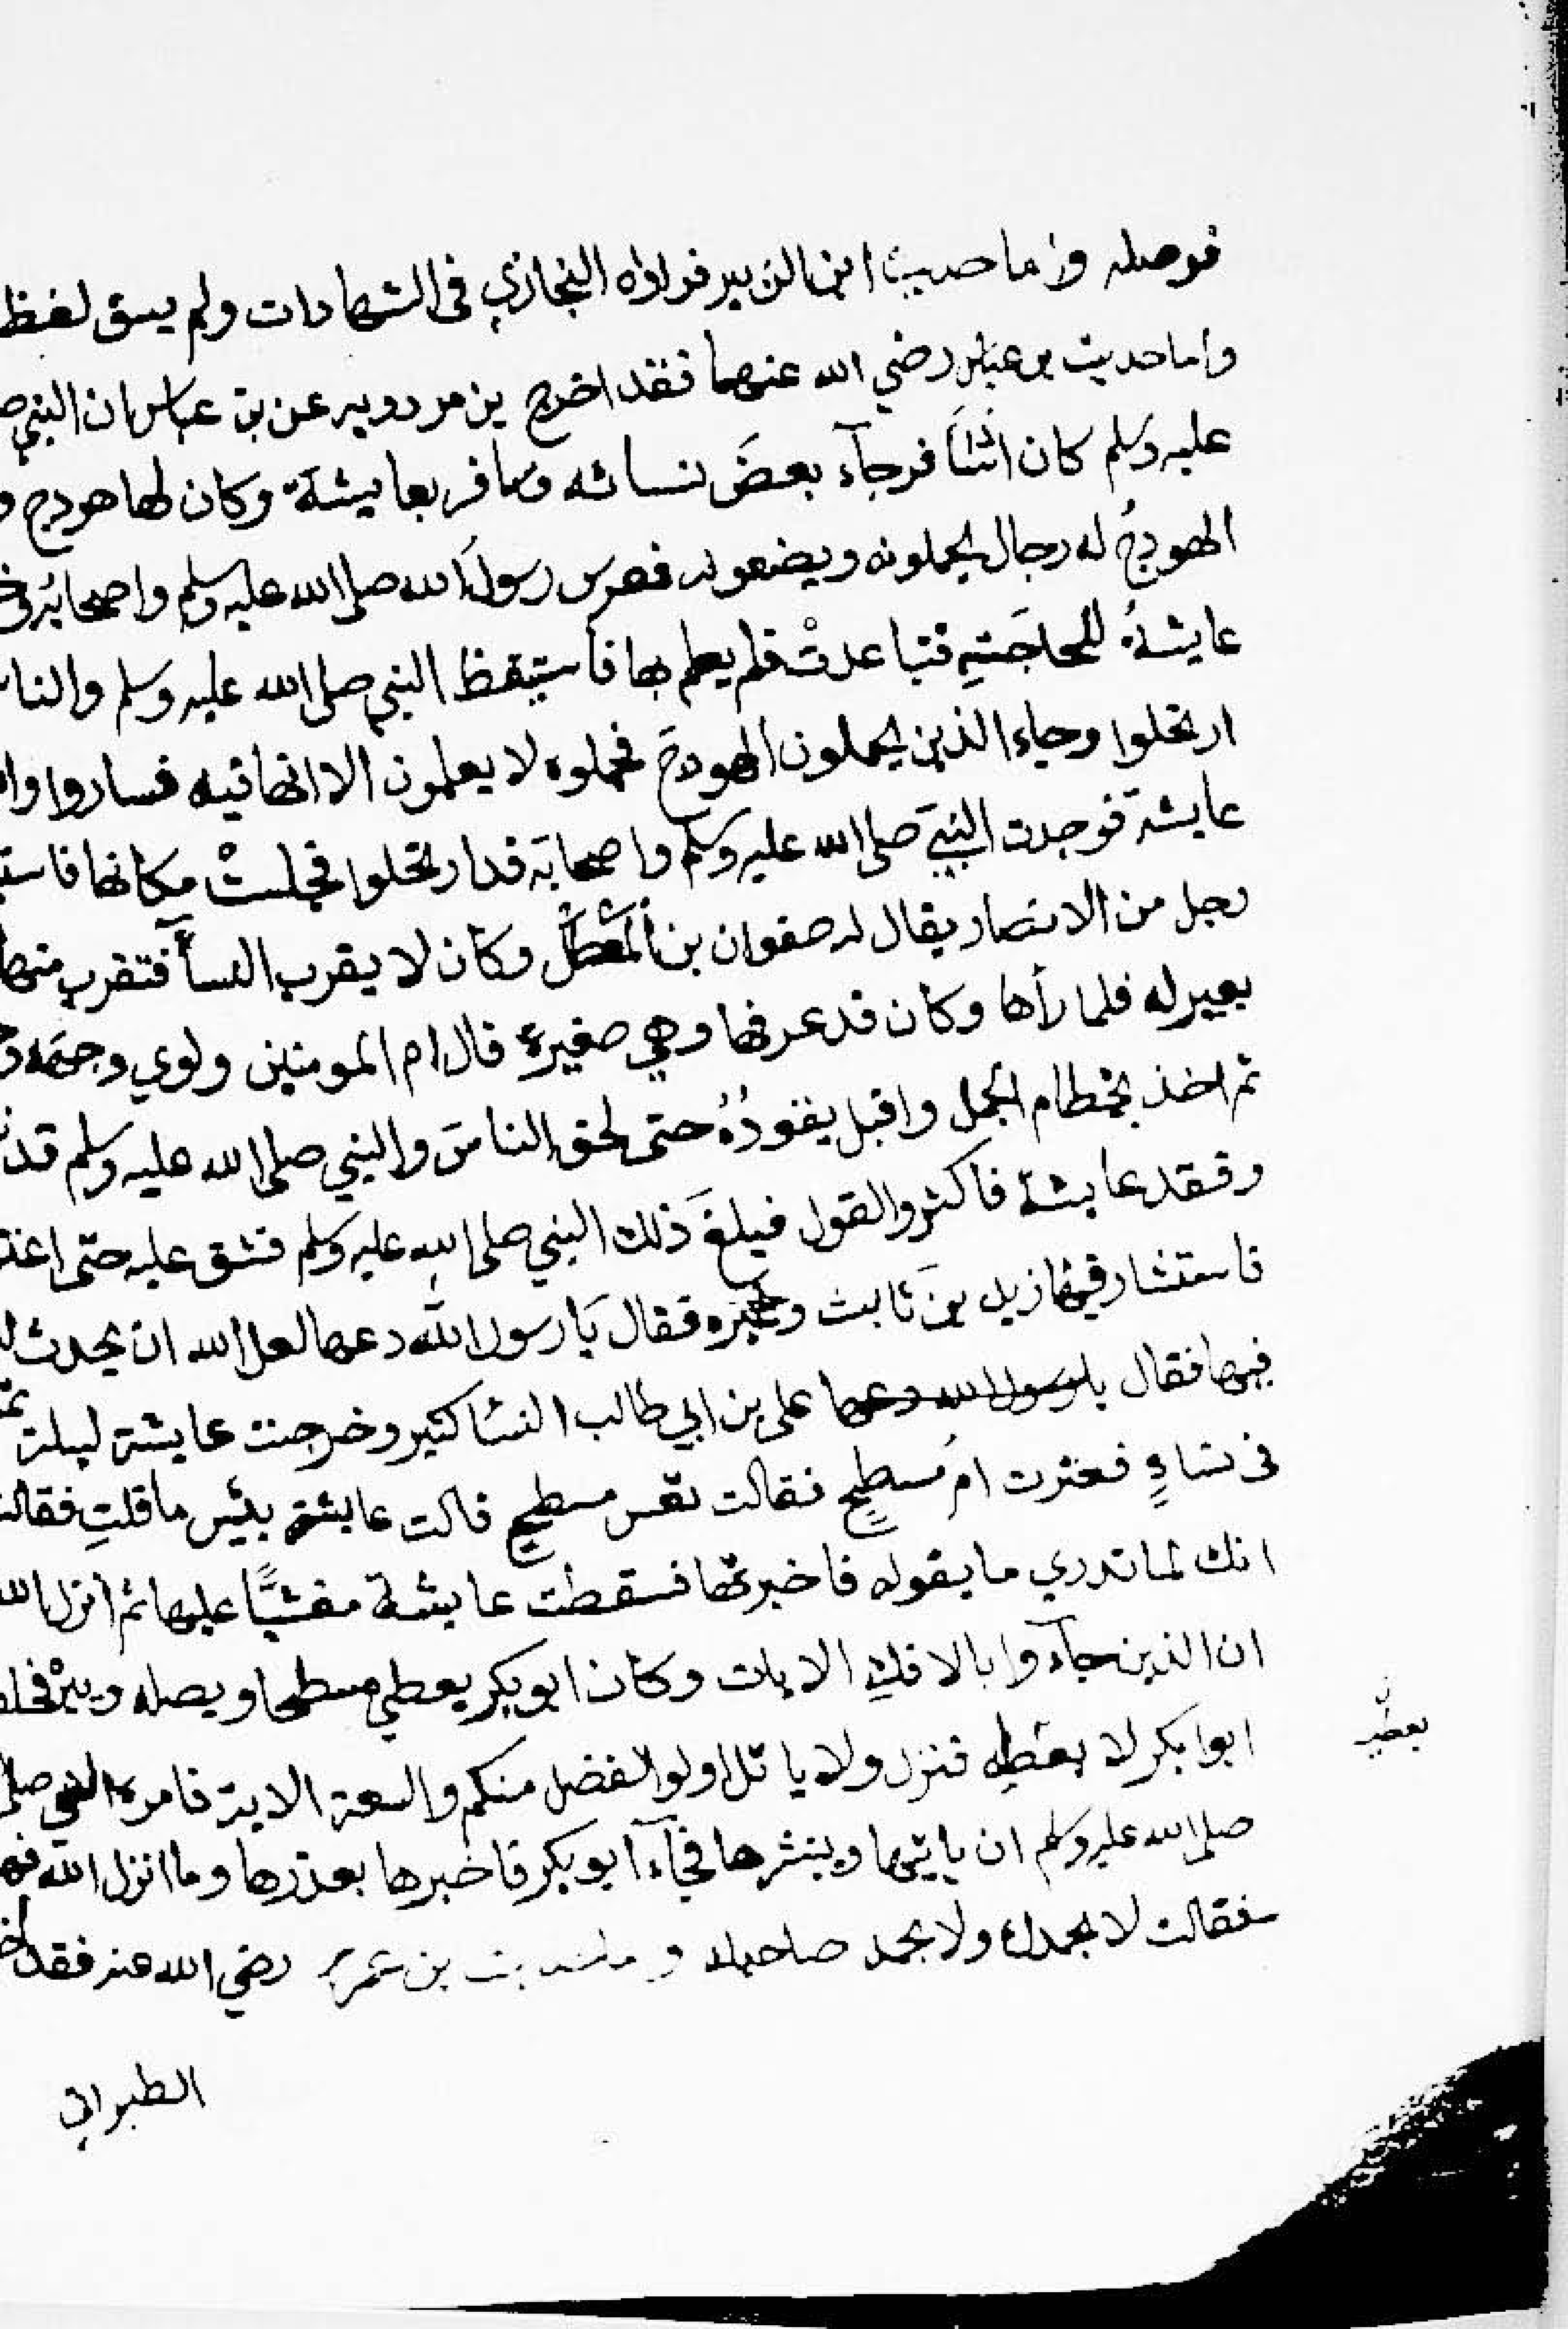 فوصله واما حديث ابن الزبير فرواه البخاري في الشهادات ولم يسق لفظ
واما حديث بن عباس رضي الله عنهما فقد اخرج بن مردويه عن بن عباس ان النبي
عليه وسلم كان اذا سافر جآء ببعض نسائه وسافر بعايشة وكان لها هودج و
الهودجُ له رجال يحملونه ويضعونه فعرس رسول الله صلى الله عليه وسلم واصحابه
عايشةُ للحاجَتهِ فتباعدتْ فلم يعلم بها فاستيقظ النبي صلى الله عليه وسلم والناس
ارتحلوا وجاء الذين يحملون الهودجَ فحملوه لا يعلمون الا انها فيه فساروا
عايشة فوجدت النبيَ صلى الله عليه وسلم واصحابَه قد ارتحلوا فجلستْ مكانها
رجل من الانصار يقال له صفوان بن المعطل وكان لا يقرب النسآ فتقرب منها
بعير له فلما رأها وكان قد عرفها وهي صغيرة قال ام المومنين ولوي وجهَه
ثم اخذ بخطام الجمل واقبل يقودُهُ حتى لحق الناسَ والنبي صلى الله عليه وسلم قد
وفقد عايشة فاكثروا القول فبلغَ ذلك النبي صلى الله عليه وسلم فشق عليه حتى
فاستشار فيها زيد بنَ ثابت وغيره فقال يَا رسول الله دعها لعل الله ان يحدث
فيها فقال يا رسول الله دعها على بن ابي طالب النسا كثير وخرجت عايشة ليلة
في نساءٍ فعثرت ام مُسطحٍ فقالت تعس مسطحٍ قالت عايشة بئس ما قلتِ فقالت
انك لما تدري ما يقوله فاخبرتها فسقطت عايشة مغشيًّا عليها ثم انزل الله
ان الذين جآءوا بالافكِ الايات وكان ابو بكر يعطي مسطحا ويصله ويبرْ
ابوا بكر لا يعْطِه فنزل ولا ياتل اولوا الفضل منكم والسعة الاية فامره النبي صلى
يعطيه
صلى الله عليه وسلم ان ياتيها ويبشرها فجآءَ ابو بكر فاخبرها بعذرها وما انزل الله
فقالت لا بحمدك ولا بحمد صاحبك بن عمر رضي الله عنه فقد
الطبراني